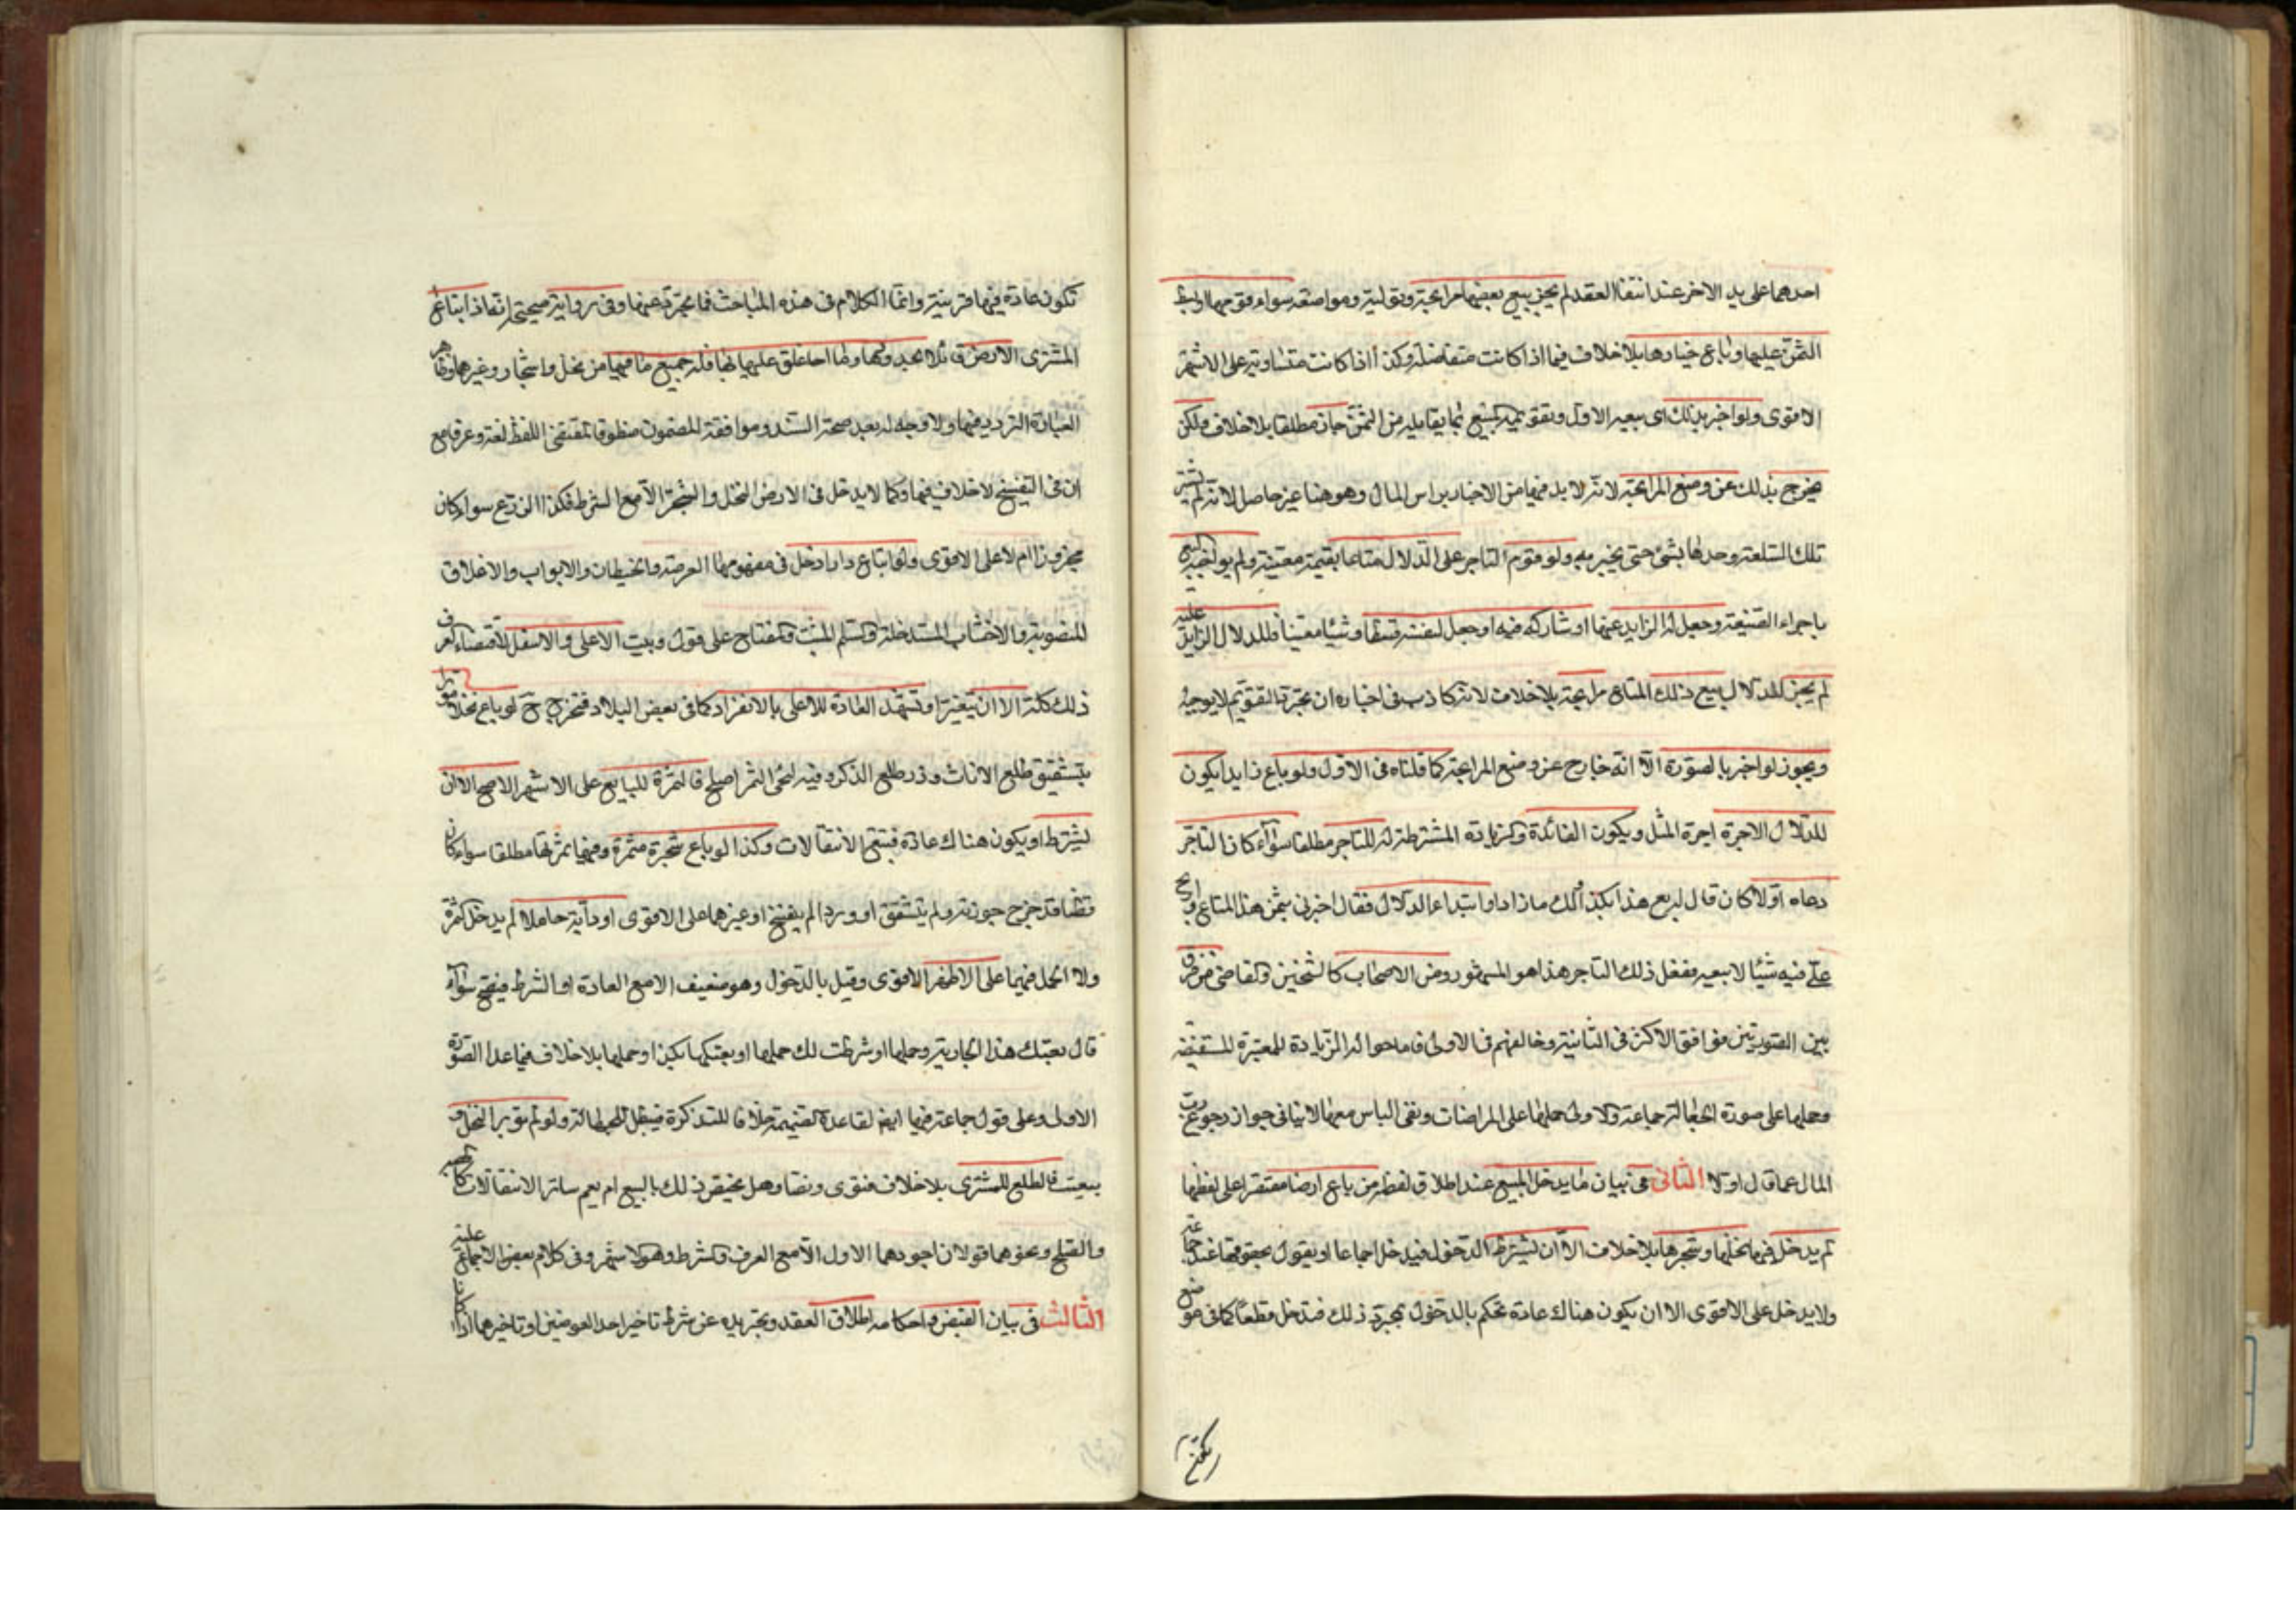 احدهما على يد الاخر عند انتقا العقد لم يجز بيع بعضها مرابحة وتولية ومواضعة سواء قومها او بسط
الثمن عليها وباع خيارها بلا خلاف فيما اذا كانت متفاضلة وكذا اذا كانت متساوية على الاشهر
الاقوى ولو اخبر بذلك اى بيعه الاول وتقويمه المبيع بما يقابله من الثمن جاز مطلقا بلا خلاف ولكن
يخرج بذلك عن وضع المرابحة لانه لا بد فيها من الاخبار براس المال وهو هنا غير حاصل لانه لم يشتر
تلك السلعة وحدها بشئ حتى يخبر به ولو قوم التاجر على الدلال متاعا بقيمة معينة ولم يواجبه البيع
باجراء الصيغة وجعل له الزايد عنها او شاركه فيه او جعل لنفسه قسطا وشيئا معينا وللدلال الزايد عليه
لم يجز للدلال بيع ذلك المتاع مرابحة بلا خلاف لانه كاذب فى اخباره ان مجرد التقويم لا يوجبه
ويجوز لو اخبر بالصورة الا انه خارج عن وضع المرابحة كما قلناه فى الاول ولو باع زايدا يكون
للدلال الاجرة اجرة المثل ويكون الفائدة والزيادة المشترطة له للتاجر مطلقا سواء كان التاجر
دعاه اولا كان قال له بع هذا بكذا ولك ما زاد او ابتداء الدلال فقال اخبرنى بثمن هذا المتاع واربح
على فيه شيئا لابيعه ففعل ذلك التاجر هذا هو المشهور ومن الاصحاب كالشيخين والقاضى من فرق
بين الصورتين فوافق الاكثر فى الثانية وخالفهم فى الاولى فاماحوا له الزيادة للمعتبرة المستفيضة
وحملها على صورة الجعالة جماعة والاولى حملها على المراضات ونفى الباس معها لا ينافى جواز رجوع رب
المال عما قال اولا الثانى فى بيان ما يدخل المبيع عند اطلاق لفظه من باع ارضا مقتصرا على لفظها
لم يدخل فيها نخلها وشجرها بلا خلاف الا ان يشترط الدخول فيدخل اجماعا او يقول بحقوقها عند جماعة
ولا يدخل على الاقوى الا ان يكون هناك عادة تحكم بالدخول بمجرد ذلك فتدخل قطعا كما فى موضع
تكون عادة فيها قرينة وانما الكلام فى هذه المباحث فما مجردة عنها وفى رواية صحيحة انه اذا ابتاع
المشترى الارض قائلا بحدودها وما اغلق عليها بابها فله جميع ما فيها من نخل واشجار وغيرهما وظاهر
العبارة التردد فيها ولا وجه له بعد صحة السند وموافقة المضمون منطوقا لمقتضى اللفظ لغة وعرفا مع
ان فى النسخ لا خلاف فيها وكما لا يدخل فى الارض النخل والشجر الا مع الشرط فكذا الزرع سواء كان
مجزوزا ام لا على الاقوى ولو ابتاع دارا دخل فى مفهومها العرصة والحيطان والابواب والاغلاق
المنصوبة والاخشاب المستدخلة والسلم المثبت والمفتاح على قول وبيت الاعلى والاسفل لاقتضاء العرف
ذلك كله الا ان يتغير او تشهد العادة للاعلى بالانفراد كما فى بعض البلاد فتخرج ح لو باع نخلا مؤبرا
بتشقيق طلع الاناث وذر طلع الذكور فيه ليجئ الثمر اصلح فالثمرة للبايع على الاشهر الاصح الا ان
يشترط او يكون هناك عادة فيتبع الانتقالات وكذا لو باع شجرة مثمرة وفيها ثمرتها مطلقا سواء كان
قطنا قد خرج جوزته ولم يتشقق او وردا لم يفتتح او غيرهما على الاقوى او دابة حاملا لم يدخل الثمرة
ولا الحمل فيهما على الاظهر الاقوى وقيل بالدخول وهو ضعيف الا مع العادة او الشرط فيصح سواء
قال بعتك هذا الجارية وحملها او شرطت لك حملها او بعتكها بكذا وحملها بلا خلاف فيما عدا الصورة
الاولى وعلى قول جماعة فيها ايضا لقاعدة الضميمة خلافا للتذكرة فيبطل للجهالة ولو لم يؤبر النخل و
بيعت فالطلع للمشترى بلا خلاف فتوى ونصا وهل يختص ذلك بالبيع ام يعم سائر الانتقالات كالهبة
والصلح ونحوهما قولان اجودهما الاول الا مع العرف والشرط وهو الاشهر وفى كلام بعض الاجماع عليه
الثالث فى بيان القبض واحكامه اطلاق العقد وتجريده عن شرط تاخير احد العوضين او تاخيرهما اذا